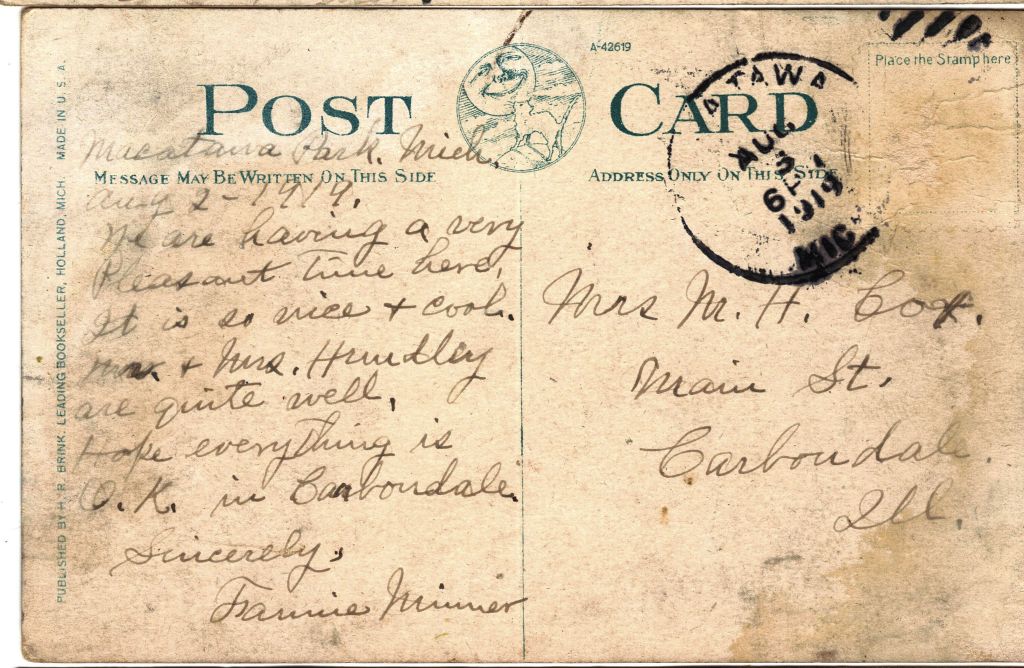 A-42619
Place the Stamp here
POST CARD
MESSAGE MAY BE WRITTEN ON THIS SIDE
ADDRESS ONLY ON THIS SIDE
ATAWA
AUG
3
6 P
1919
MICH
Macatawa Park, Mich.
Aug 2-1919.
We are having a very
Pleasant time here,
It is so nice + cool.
Mr. + Mrs. Hundley
are quite well,
Hope everything is
O.K. in Carbondale.
Sincerely,
Fannie Minner
Mrs M. H. Cox.
Main St.
Carbondale.
Ill.
PUBLISHED BY H. R. BRINK, LEADING BOOKSELLER, HOLLAND, MICH. MADE IN U. S. A.